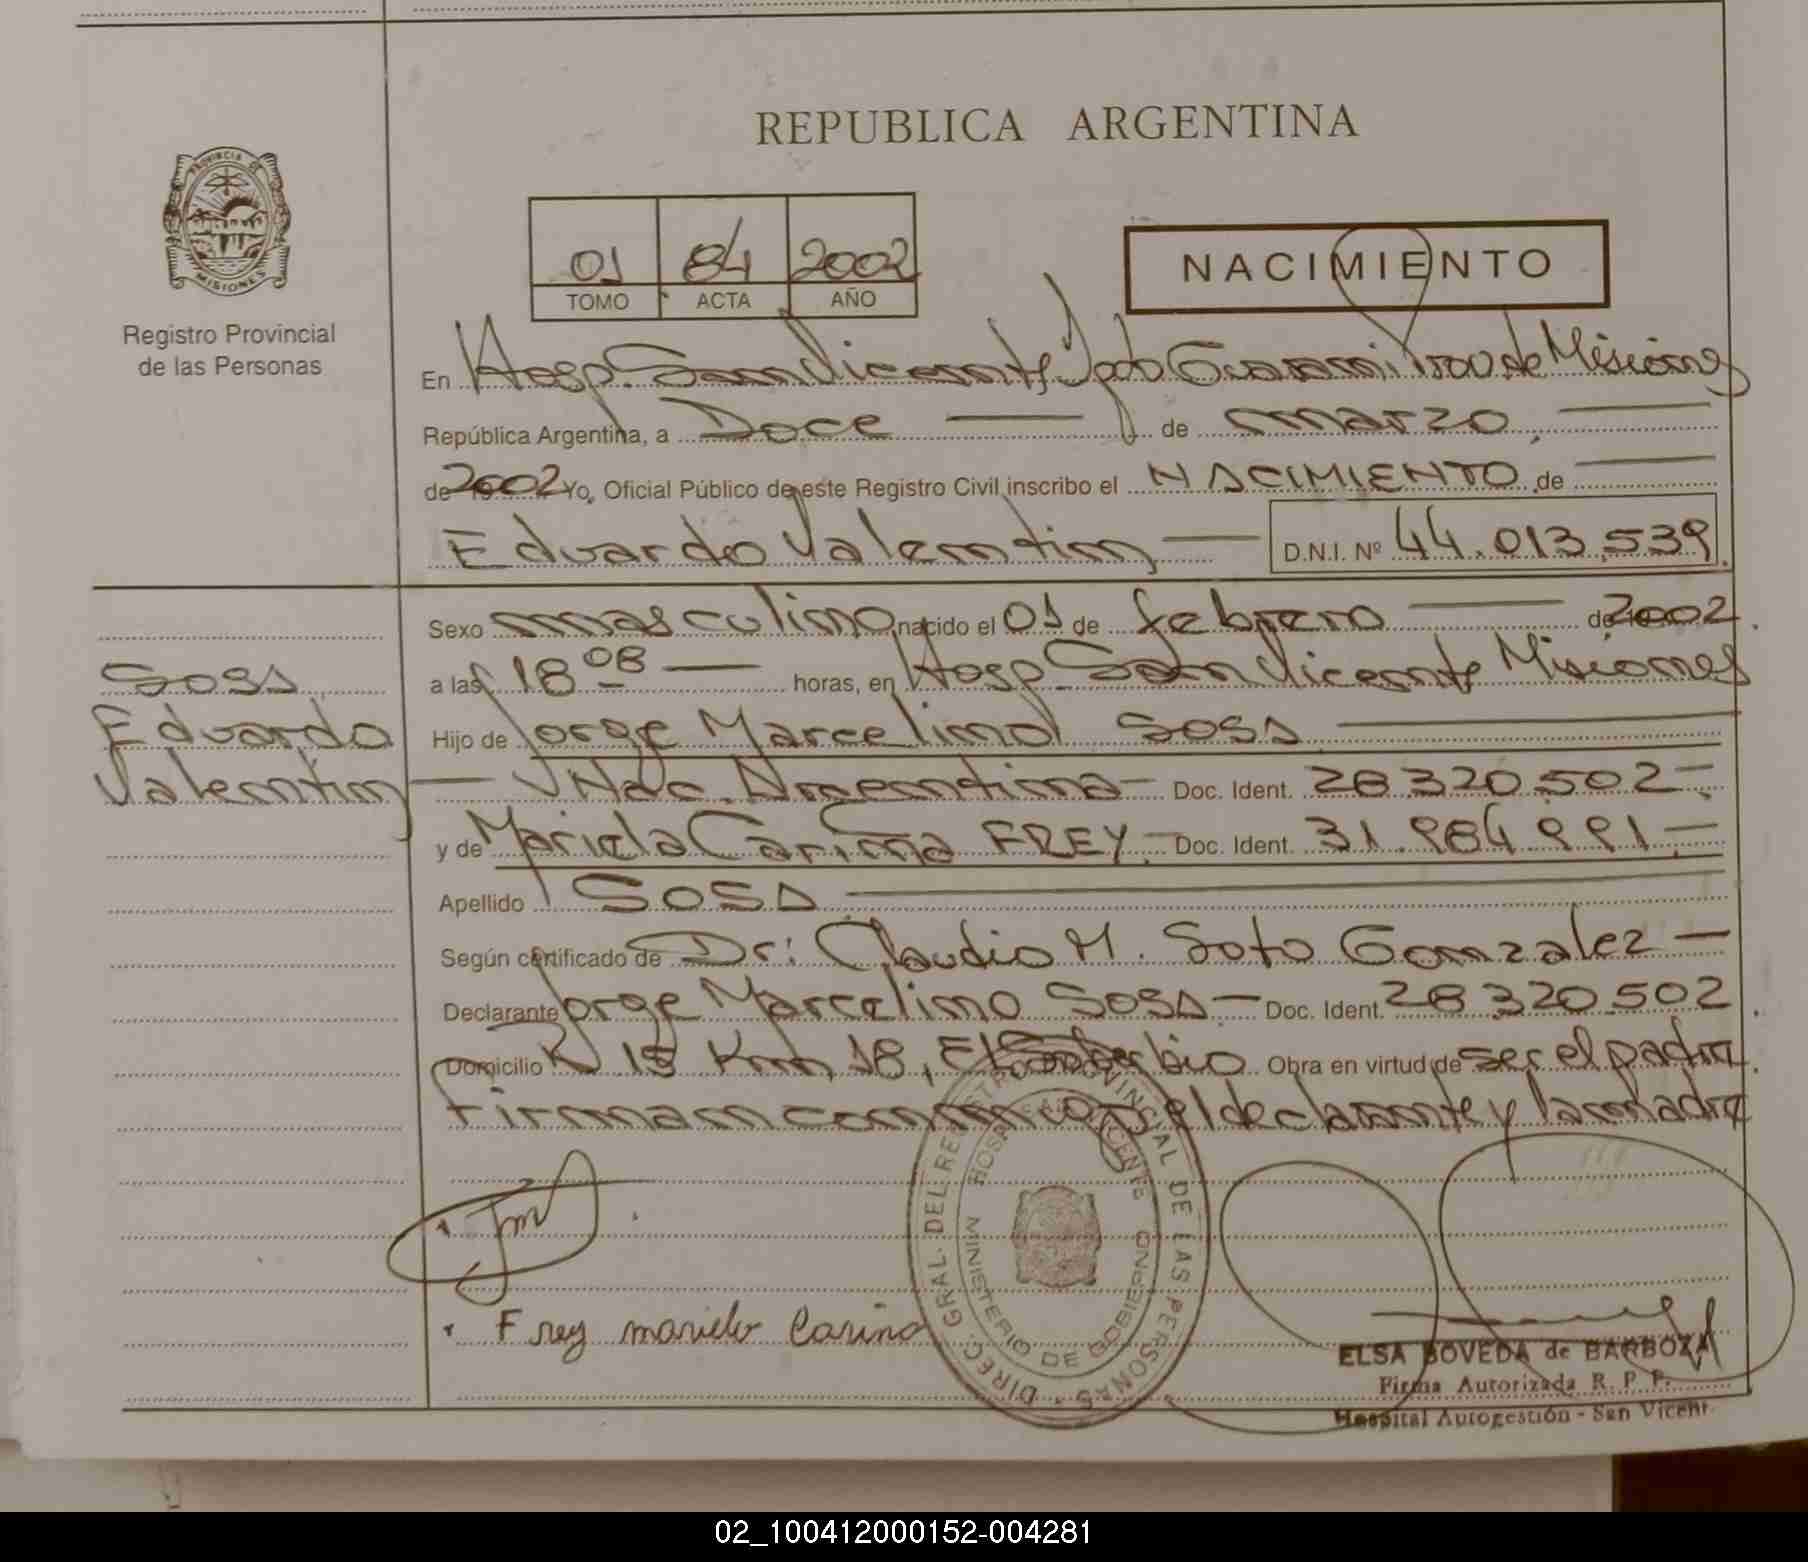 REPUBLICA ARGENTINA
PROVINCIA DE MISIONES
Registro Provincial
de las Personas
01 84 2002
TOMO ACTA AÑO
NACIMIENTO
En Hosp. San Vicente Dpto Guarani Prov de Misiones
República Argentina, a Doce — de marzo, —
de 2002 Yo, Oficial Público de este Registro Civil inscribo el NACIMIENTO de —
Eduardo Valentin — D.N.I. Nº 44.013.539
Sexo masculino nacido el 01 de febrero — de 2002.
a las 18 08 — horas, en Hosp. San Vicente Misiones
Hijo de Jorge Marcelino SOSA —
— Nac. Argentina — Doc. Ident. 28.320.502 —
y de Mariela Carina FREY. — Doc. Ident. 31.984.991. —
Apellido SOSA —
Según certificado de Dr: Claudio M. Soto Gonzalez —
Declarante Jorge Marcelino SOSA — Doc. Ident. 28.320.502.
Domicilio R 15 Km 18, El Soberbio Obra en virtud de ser el padre.
firman conmigo el declarante y la madre
Sosa
Eduardo
Valentin
Frey mariela Carina
DIREC. GRAL. DEL REGISTRO PROVINCIAL DE LAS PERSONAS
HOSPITAL SAN VICENTE
MINISTERIO DE GOBIERNO
ELSA BOVEDA de BARBOZA
Firma Autorizada R. P. P.
Hospital Autogestión - San Vicent
02_100412000152-004281